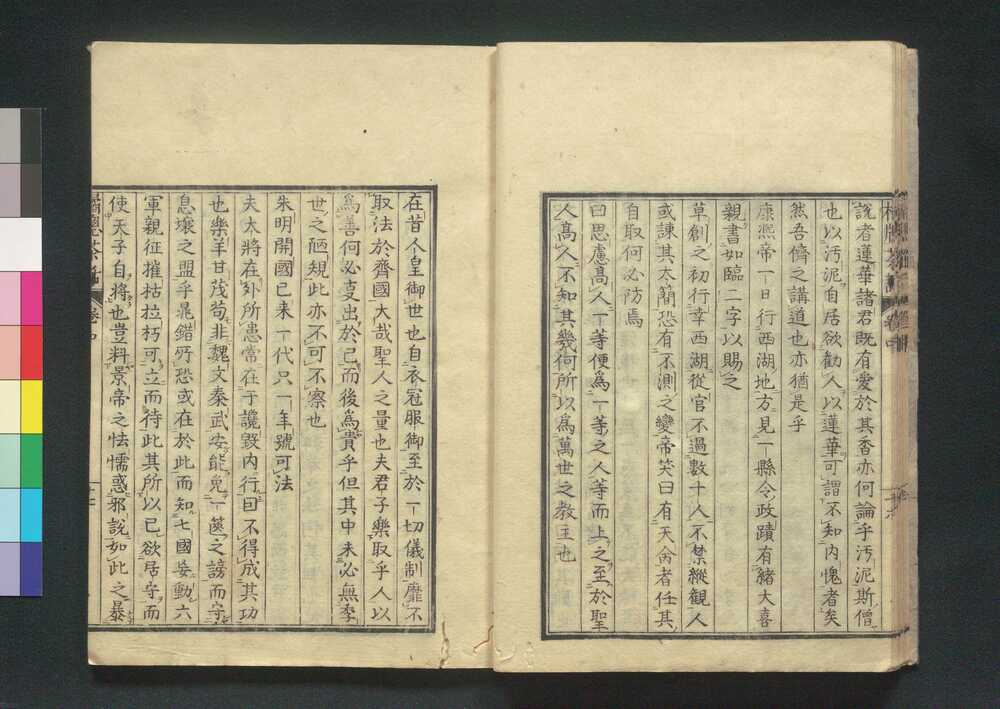 說者蓮華諸君既有愛於其香亦何論乎汚泥斯僧
也以汚泥自居欲勸人以蓮華可謂不知內愧者矣
然吾儕之講道也亦猶是乎
康熙帝一日行西湖地方見一縣令政蹟有緒大喜
親書如臨二字以賜之
草創之初行幸西湖從官不過數十人不禁縱觀人
或諫其太簡恐有不測之變帝笑曰有天命者任其
自取何必防焉
曰思慮高人一等便爲一等之人等而上之至於聖
人高人不知其幾何所以爲萬世之教主也
在昔人皇御世也自衣冠服御至於一切儀制靡不
取法於齊國大哉聖人之量也夫君子樂取乎人以
爲善何必支出於己而後爲貴乎但其中未必無季
世之陋規此亦不可不察也
朱明開國已來一代只一年號可法
夫大將在外所患常在于讒毀內行囙不得成其功
也樂羊甘茂苟非魏文秦武安能免一篋之謗而守
息壤之盟乎鼂錯所恐或在於此而知七國妄動六
軍親征摧枯拉朽可立而待此其所以已欲居守而
使天子自將也豈料景帝之怯懦惑邪說如此之暴
茶話 卷中